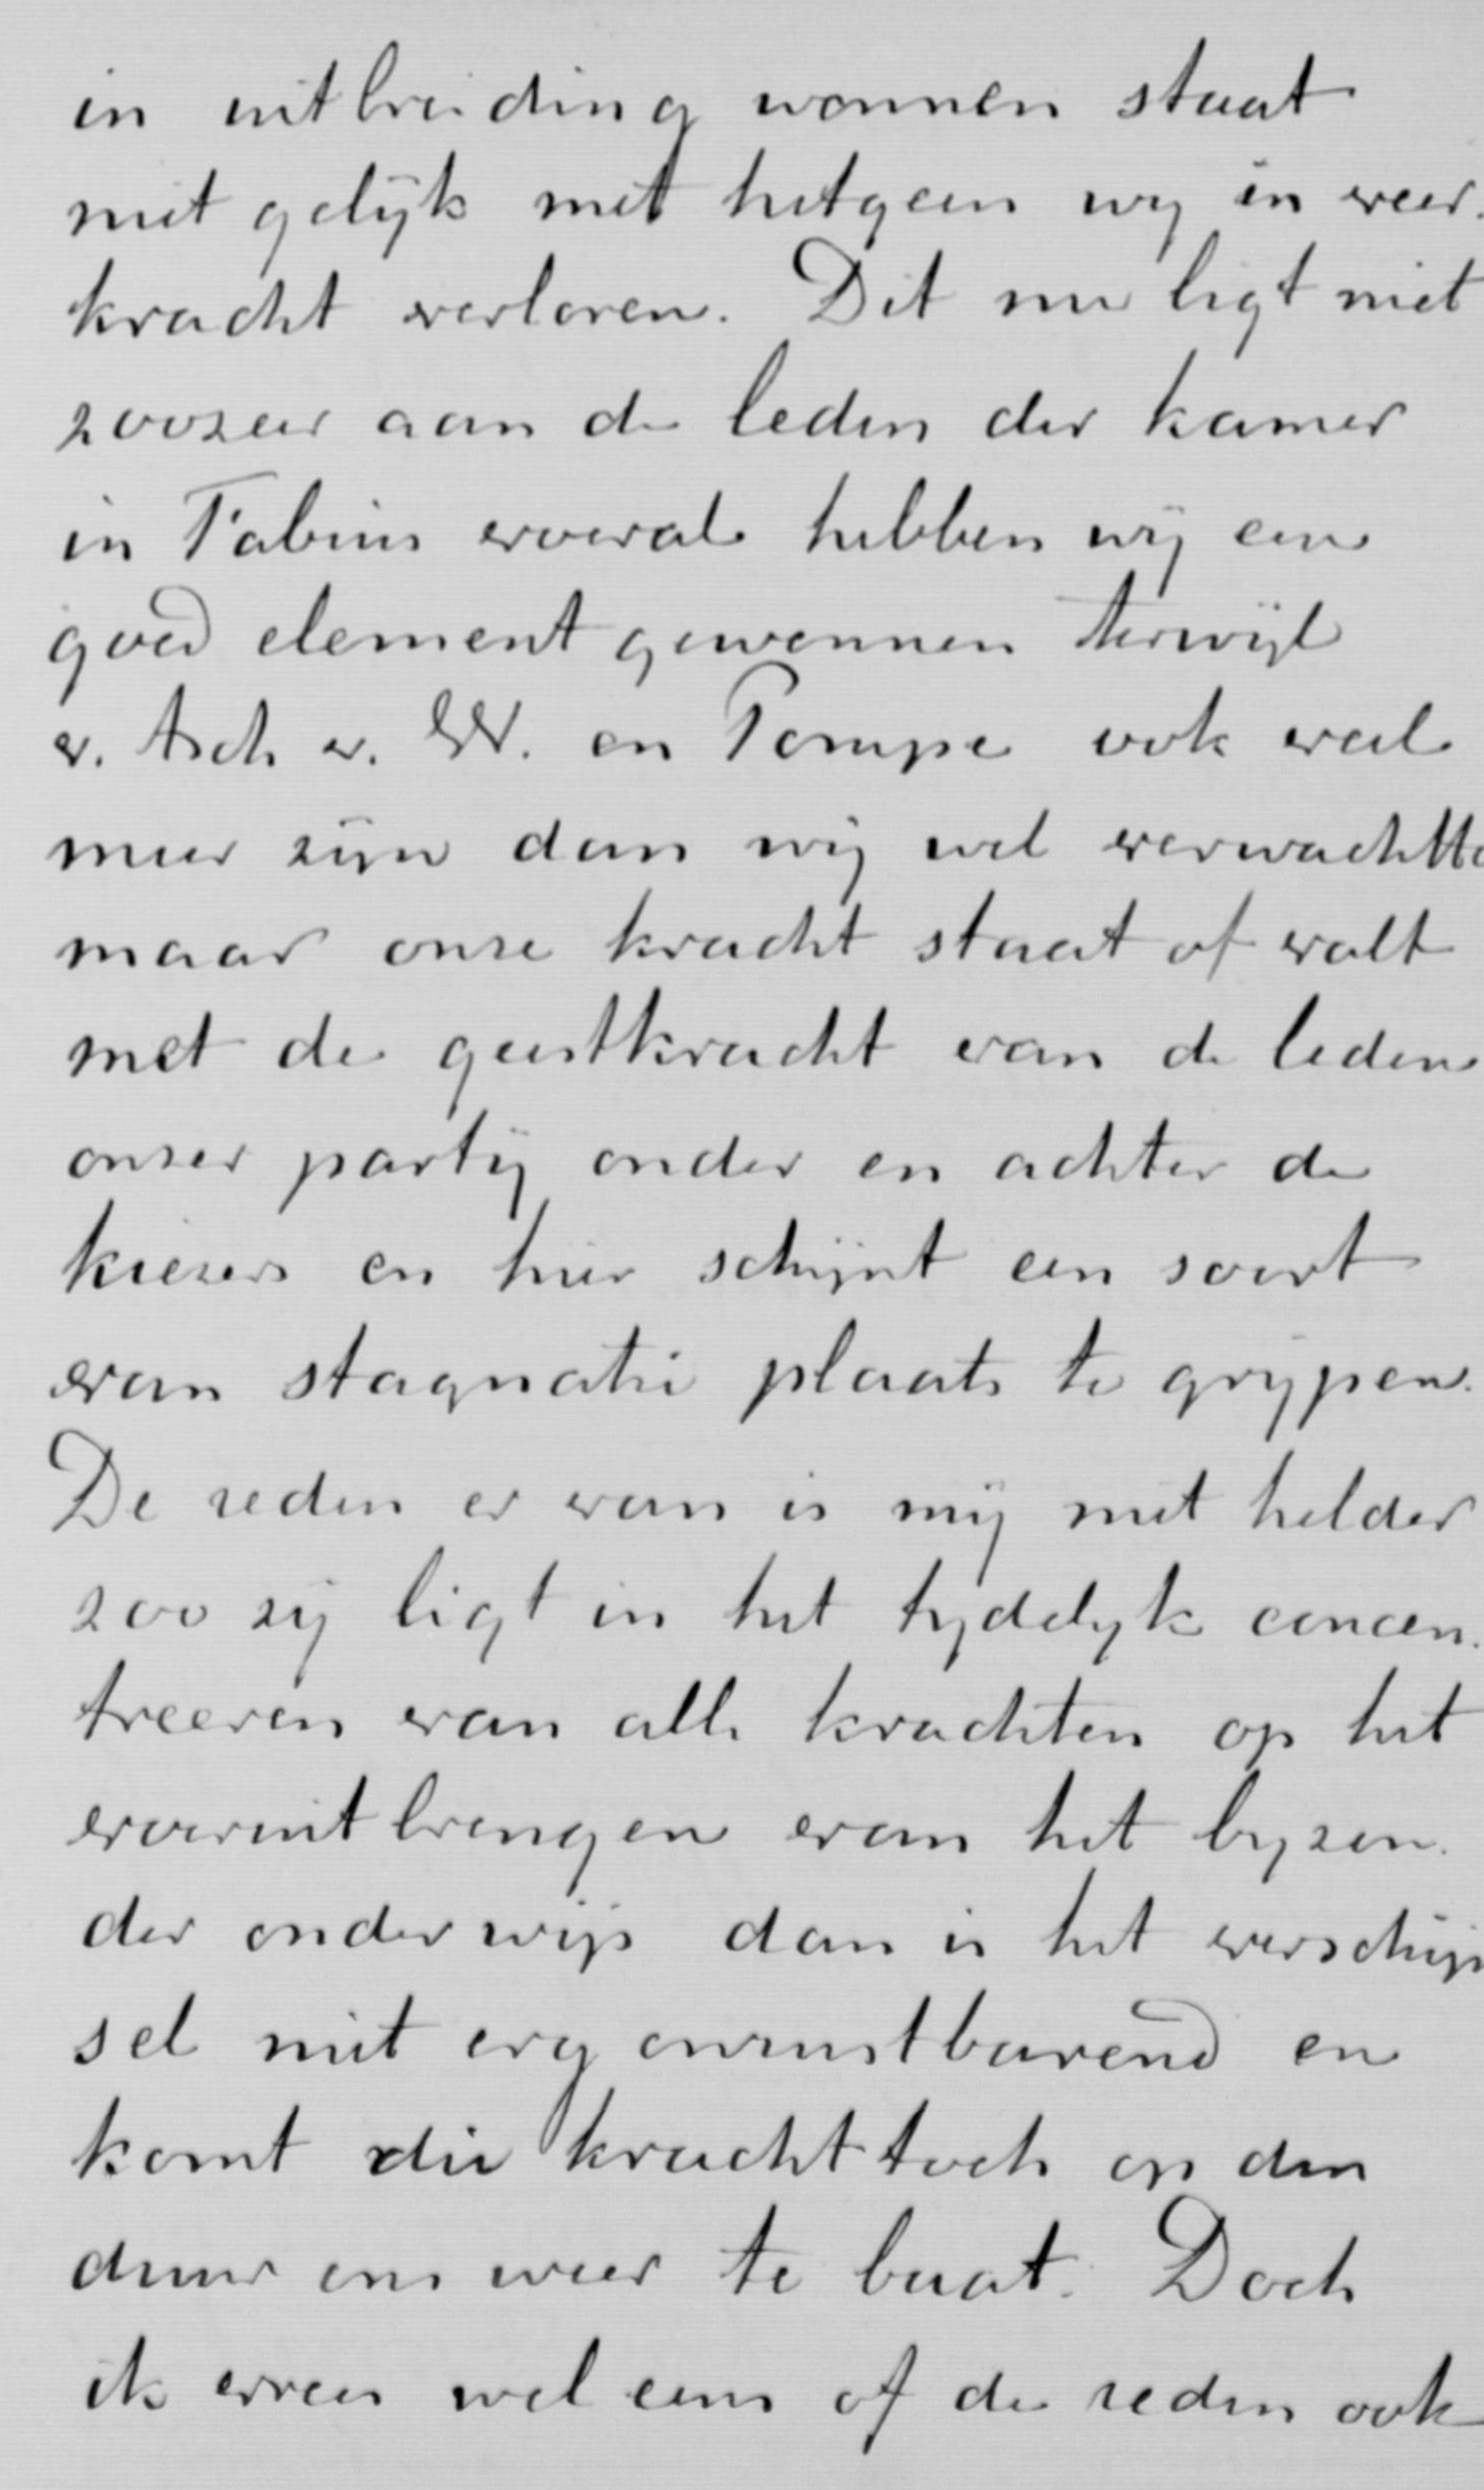 in uitbreiding wonnen staat
niet gelijk met hetgeen wij in veer-
kracht verloren. Dit nu ligt niet
zoozeer aan de leden der kamer
in Fabius vooral hebben wij een
goed element gewonnen terwijl
v. Asch v. W. en Pompe ook veel
meer zijn dan wij wel verwachtte
maar onze kracht staat of valt
met de geestkracht van de leden
onzer partij onder en achter de
kiezers en hier schijnt een soort
van stagnatie plaats te grijpen.
De reden er van is mij niet helder
zoo zij ligt in het tydelyk concen-
treeren van alle krachten op het
vooruitbrengen van het byzon-
der onderwijs dan is het verschijn
sel niet erg onrustbarend en
komt die kracht toch op den
duur ons weer te baat. Doch
ik vrees wel eens of de reden ook